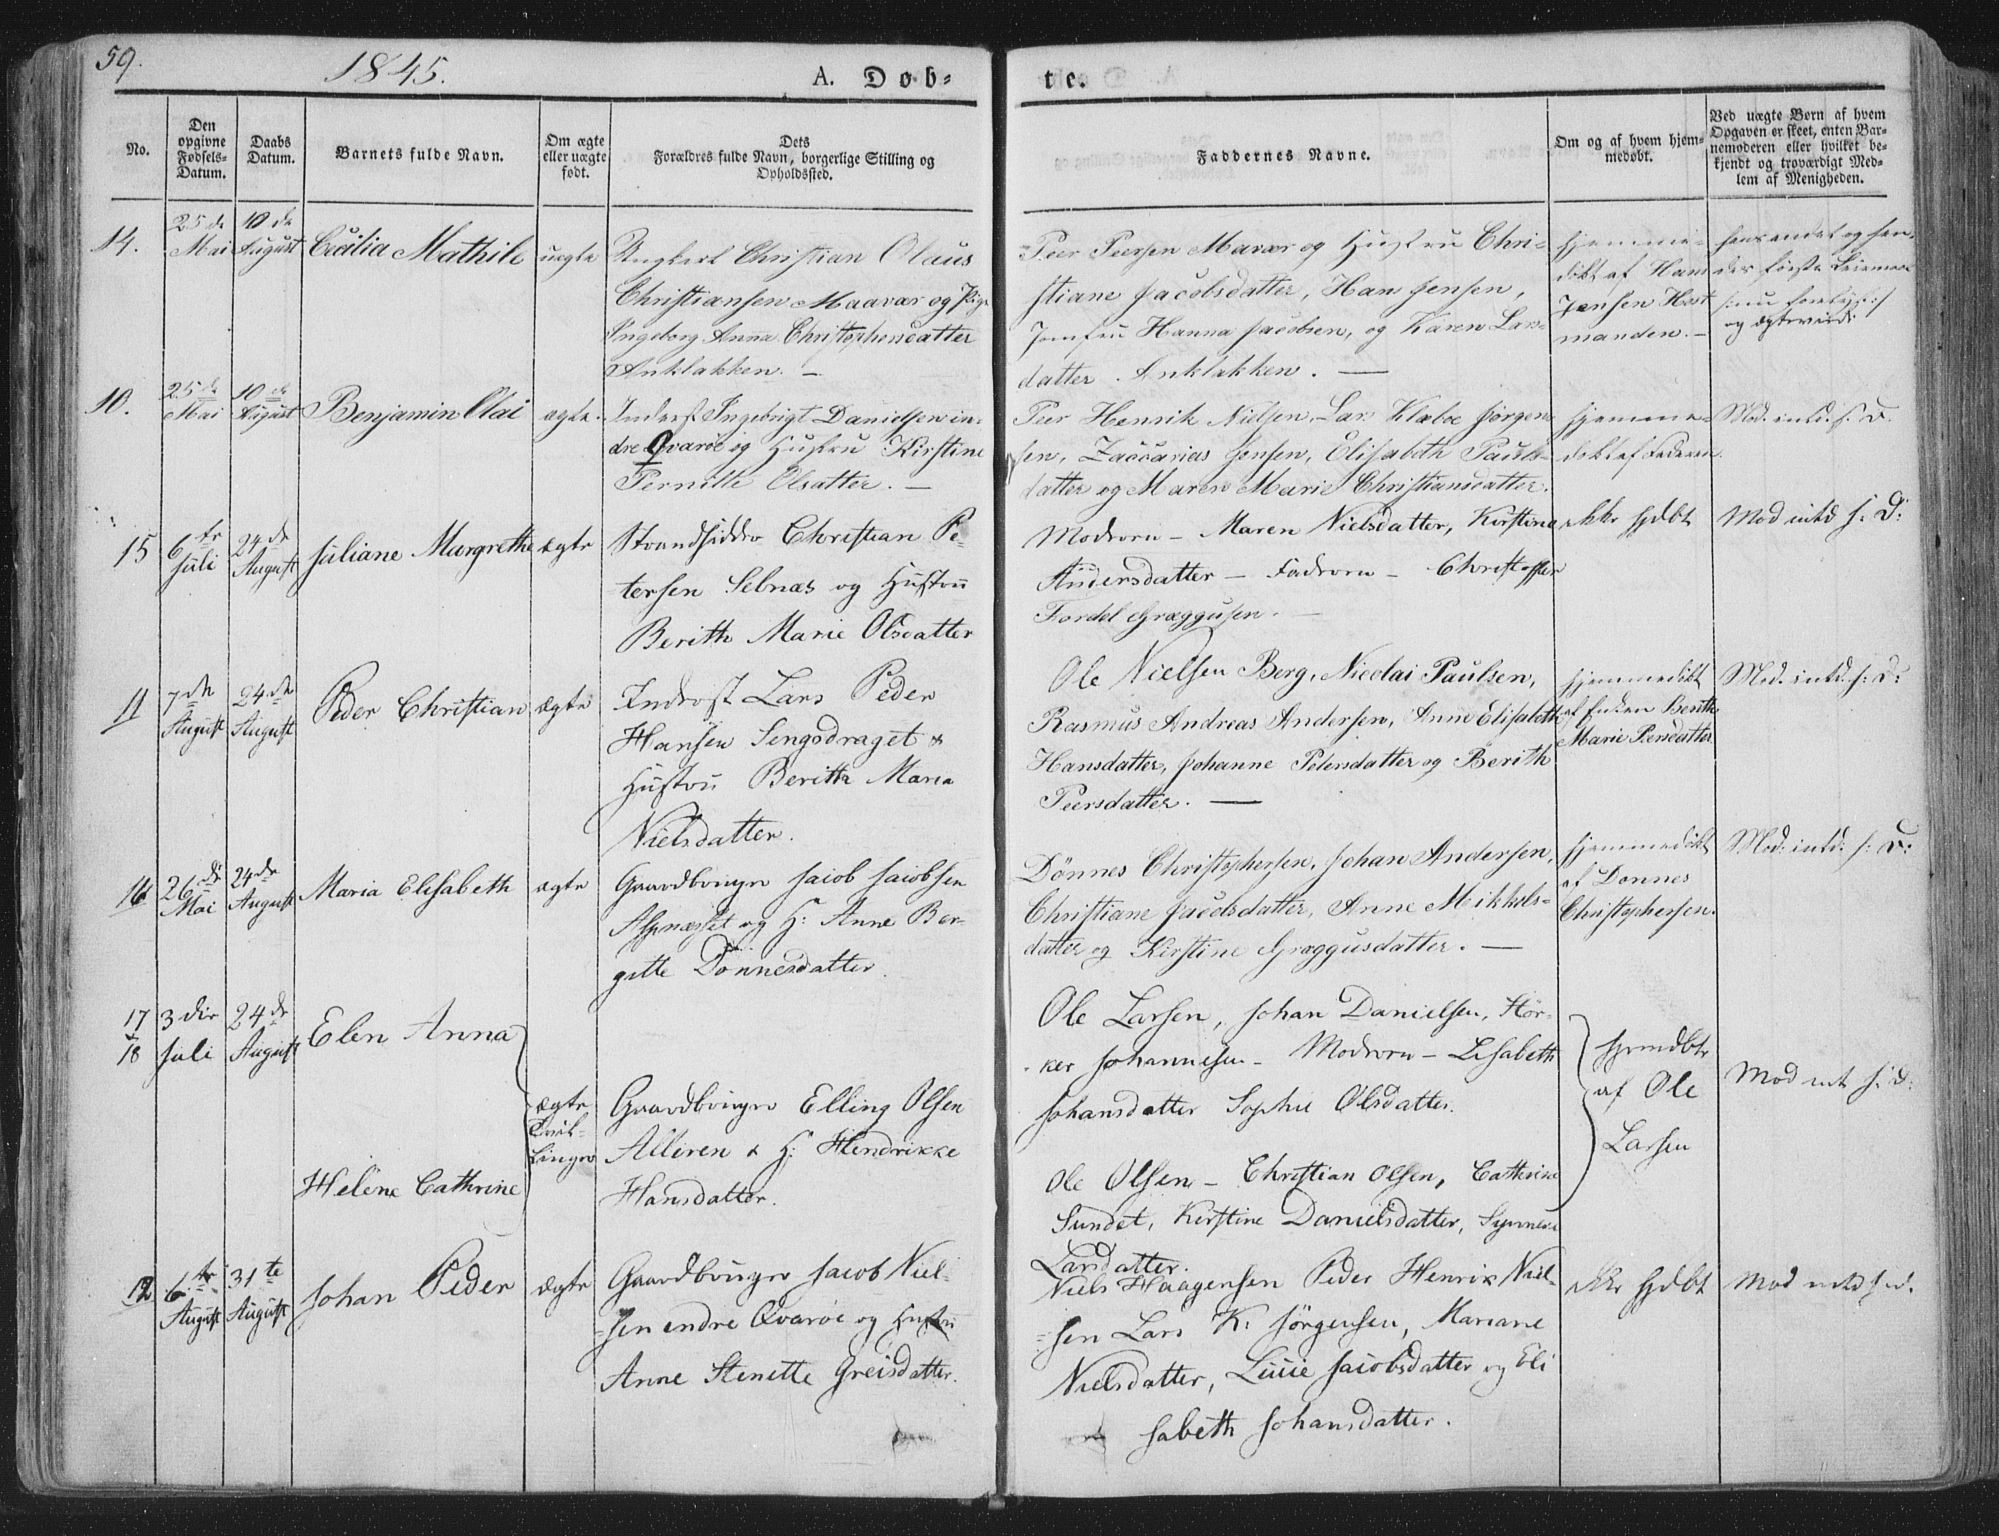 59.
1845.
A. Døb-
te.
No.
Den opgivne Fødsels-Datum.
Daabs Datum.
Barnets fulde Navn.
Om ægte eller uægte født.
Dets
Forældres fulde Navn, borgerlige Stilling og
Opholdssted.
Faddernes Navne.
Om og af hvem hjem-
medøbt.
Ved uægte Børn af hvem
Opgaven er skeet, enten Bar-
nemoderen eller hvilket be-
kjendt og troværdigt Med-
lem af Menigheden.
14.
25 de Mai
10 de August
Cecilia Mathile
uægte
Ungkarl Christian Olaus
Christiansen Maavær og Pige
Ingeborg Anna Christophersdatter
Anklakken. —
Peer Peersen Mavær og Hustru Chri-
stiane Jacobsdatter, Han Jensen,
Jomfru Hanna Jacobsen, og Karen Lars-
datter. Anklakken. —
hjemme-
døbt af Hans
Jensen Hest-
manden. —
10.
25 de Mai
10 de August
Benjamin Olai
ægte.
Inderst Ingebrigt Danielsen in-
dre Qvarøe og Hustru Kirstine
Pernille Olsatter. —
Peer Henrik Nielsen, Lars Klæboe Jørgen-
sen, Zaccarias Jensen, Elisabeth Pauls-
datter og Maren Marie Christiansdatter.
hjemme-
døbt af Faderen.
Mod. intd. s. D.
15
6te Juli
24de August
Juliane Margrethe
ægte
Strandsidder Christian Pe-
tersen Selnæs og Hustru
Berith Marie Olsdatter
Modrorn — Maren Nielsdatter, Kirstina
Andersdatter — Fadrorn — Christoffer
Fordel Græggusen. —
ikke hjdbt
Mod intd s: D:
11
7de August
24de August
Peder Christian
ægte
Inderst Lars Peder
Hansen Sengsdraget &
Hustru Berith Maria
Nielsdatter.
Ole Nielsen Berg, Nicolai Paulsen,
Rasmus Andreas Andersen, Anne Elisabeth
Hansdatter, Johanne Petersdatter og Berith
Peersdatter. —
hjemmedøbt
af Enken Berith
Marie Peersdatter
Mod. intd. s: D:
16
26de Mai
24de August
Maria Elisabeth
ægte
Gaardbruger Jacob Jacobsen
Aspnæsset og H: Anne Ber-
gitte Dønnesdatter.
Dønnes Christophersen, Johan Andersen,
Christiane Jacobsdatter, Anne Mikkels-
datter og Kirstine Græggusdatter. —
hjemmedøbt
af Dønnes
Christophersen.
Mod: intd: s: D:
17
&
18
3die Juli
24de August
Elen Anna
Helene Cathrine
ægte
Tvil-
linger
Gaardbruger Elling Olsen
Alteren & H: Hendrikke
Hansdatter.
Ole Larsen, Johan Danielsen, Hør-
ker Johannesen — Modrorn — Lisabeth
Johansdatter Sophie Olsdatter.
Ole Olsen — Christian Olsen, Cathrine
Sundet, Kirstine Danielsdatter, Synneve
Larsdatter.
hjemdbt
af Ole
Larsen
Mod int s: D:
12
6te August
31te August
Johan Peder
ægte
Gaardbruger Jacob Niel-
sen endre Qvarøe og Hustru
Anne Stenette Greisdatter.
Niels Haagensen Peder Henrik Niel-
sen Lars K: Jørgensen, Mariane
Nielsdatter, Lucie Jacobsdatter og Eli
sabeth Johansdatter.
ikke hjdbt
Mod intd s. d.